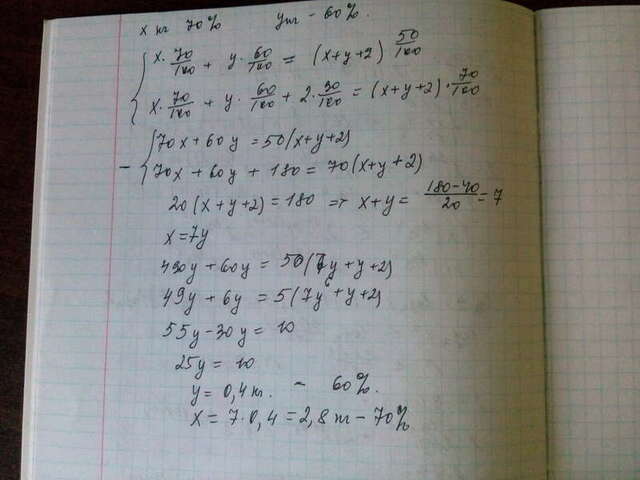 x кг 70% y кг - 60%.
x · 70/100 + y · 60/100 = (x+y+2) 50/100
x · 70/100 + y · 60/100 + 2 · 90/100 = (x+y+2) · 70/100
- { 70x + 60y = 50(x+y+2)
70x + 60y + 180 = 70(x+y+2)
20(x+y+2) = 180 => x+y = (180-40)/20 = 7
x = 7y
490y + 60y = 50(7y+y+2)
49y + 6y = 5(7y+y+2)
55y - 30y = 10
25y = 10
y = 0,4 кг. - 60%.
x = 7·0,4 = 2,8 кг - 70%